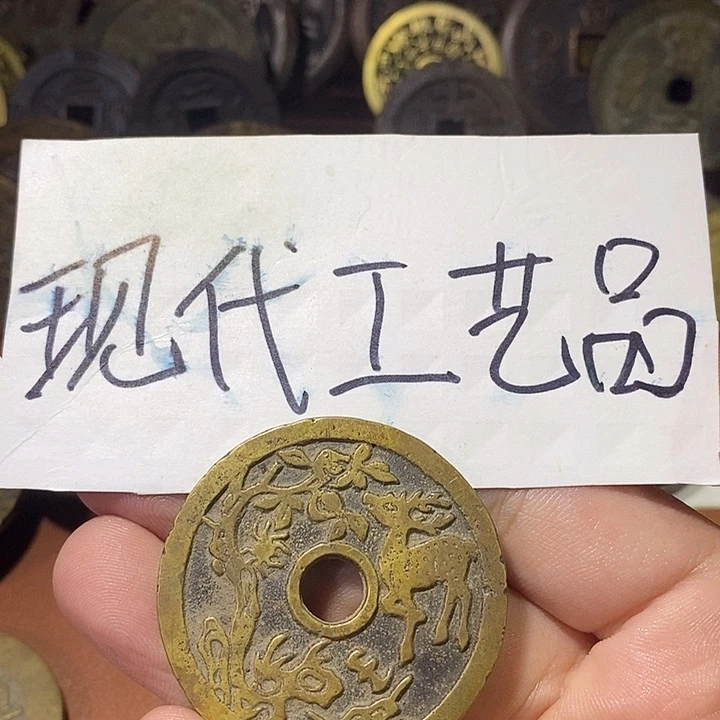 现代工艺品